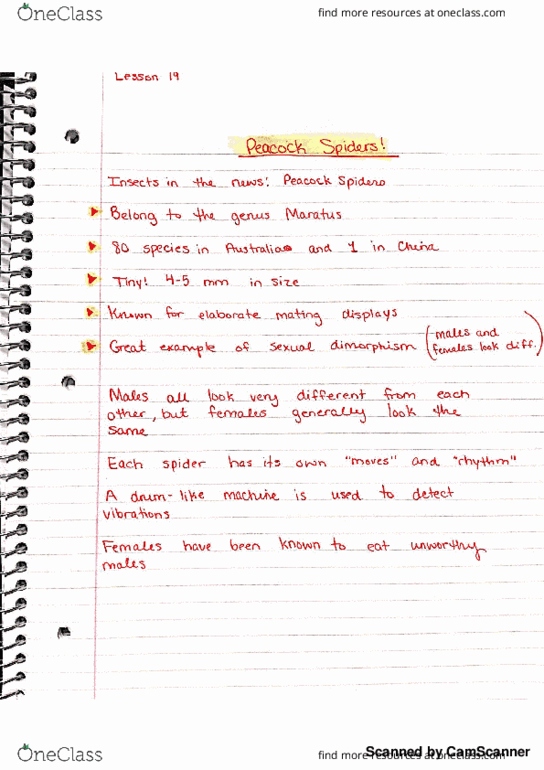 OneClass
find more resources at oneclass.com
Lesson 19
Peacock Spiders!
Insects in the news: Peacock Spiders
Belong to the genus Maratus
80 species in Australia and 1 in China
Tiny! 4-5 mm in size
Known for elaborate mating displays
Great example of sexual dimorphism (males and
females look diff.)
Males all look very different from each
other, but females generally look the
same
Each spider has its own "moves" and "rhythm"
A drum-like machine is used to detect
vibrations
Females have been known to eat unworthy
males
OneClass
find more resources at oneclass.com
Scanned by CamScanner